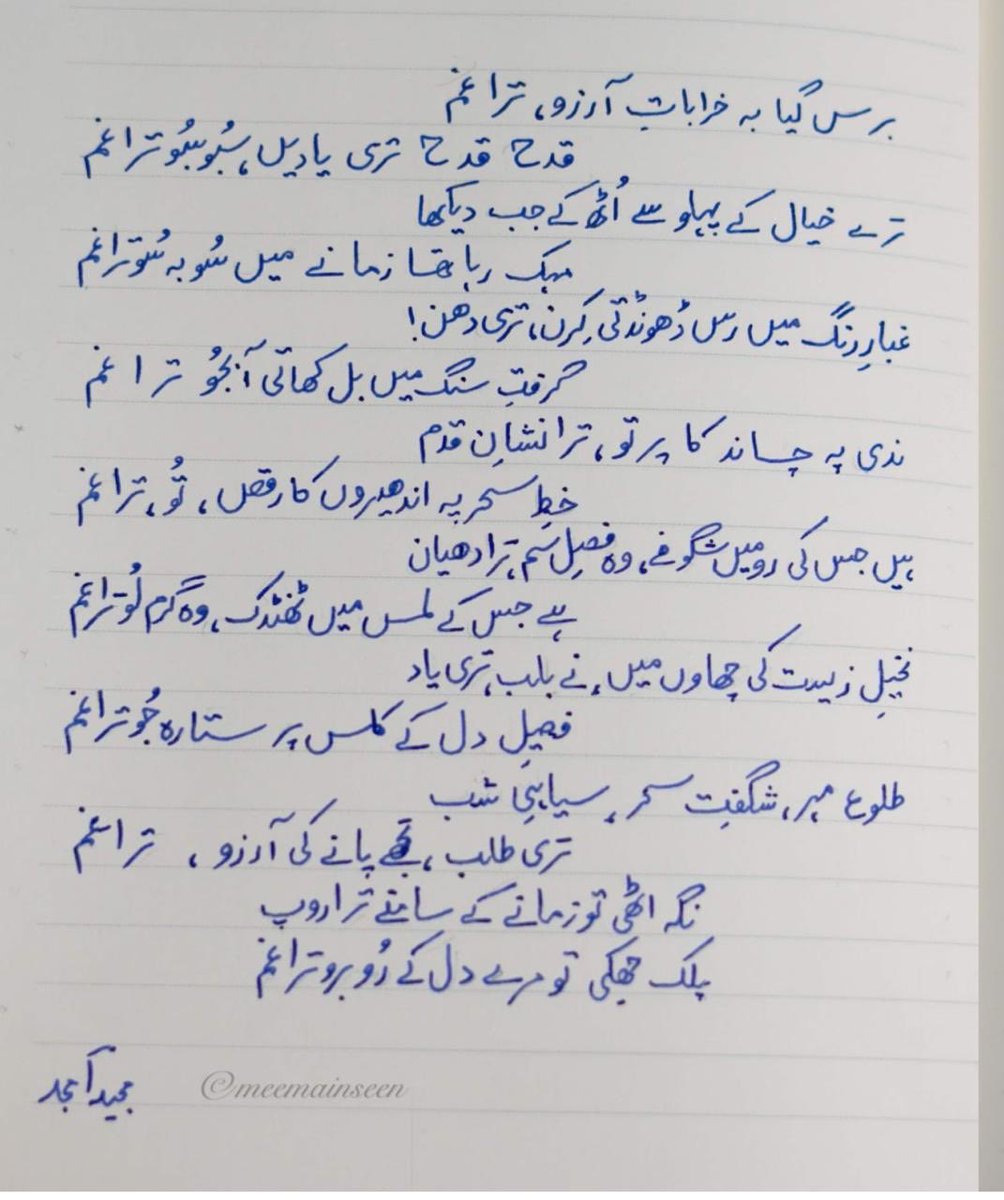 برس گیا بہ خراباتِ آرزو، ترا غم
قدح قدح تری یادیں، سُبو سُبو ترا غم
ترے خیال کے پہلو سے اُٹھ کے جب دیکھا
مہک رہا تھا زمانے میں سُو بہ سُو ترا غم
غبارِ رنگ میں رس ڈھونڈتی کِرن، تری دھن!
گرفتِ سنگ میں بل کھاتی آبجُو ترا غم
ندی پہ چاند کا پرتو، ترا نشانِ قدم
خطِ سحر پہ اندھیروں کا رقص، تُو، ترا غم
ہیں جس کی رو میں شگوفے، وہ فصلِ سَم، ترا دھیان
ہے جس کے لمس میں ٹھنڈک، وہ گرم لُو ترا غم
نخیلِ زیست کی چھاوں میں، نے بلب تری یاد
فصیلِ دل کے کلس پر ستارہ جُو ترا غم
طلوع مہر، شگفتِ سحر، سیاہیِ شب
تری طلب، تجھے پانے کی آرزو، ترا غم
نگہ اٹھی تو زمانے کے سامنے ترا روپ
پلک جھکی تو مرے دل کے رُوبرو ترا غم
مجید امجد
@meemainseen